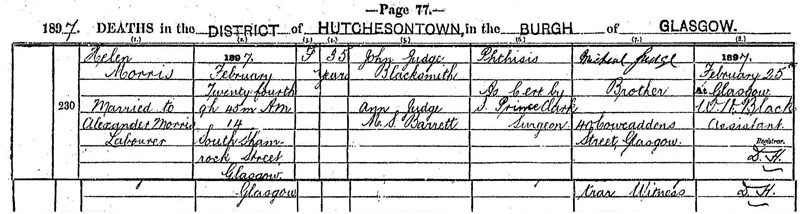 —Page 77.—
1897. DEATHS in the DISTRICT of HUTCHESONTOWN, in the BURGH of GLASGOW.
(1.) (2.) (3.) (4.) (5.) (6.) (7.) (8.)
Helen 1897. F 35 John Judge Phthisis Micheal Judge 1897.
Morris February Years Blacksmith February 25th
Twenty fourth As Cert by Brother At Glasgow
230 Married to 9h 45m A.M. Ann Judge S. Prince Clark W. H. Black
Alexander Morris 14 M.S. Barrett Surgeon 40 Cowcaddens Assistant
Labourer South Sham- Street, Glasgow. Registrar.
rock Street D. H.
Glasgow
Glasgow Witness D. H.